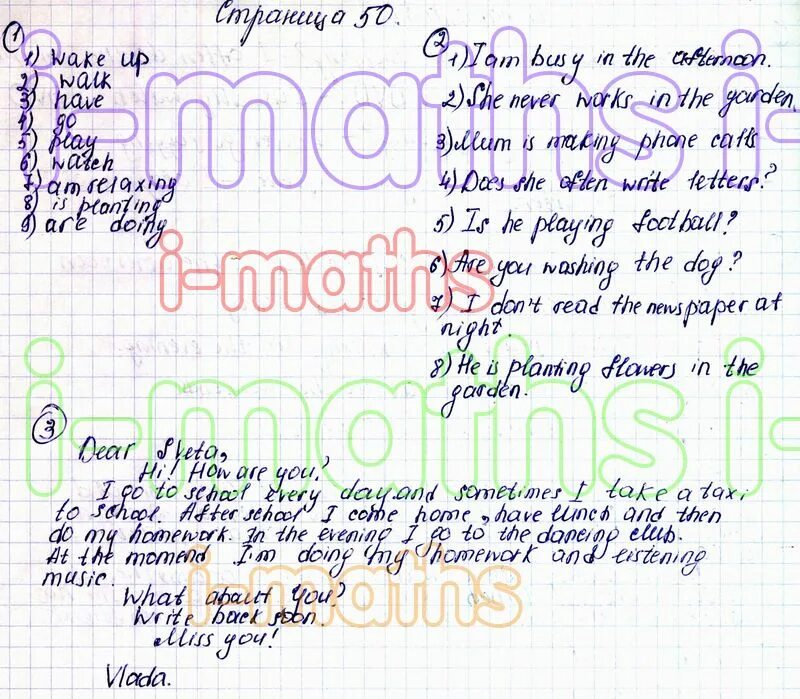 Страница 50.
①
1) wake up
2) walk
3) have
4) go
5) play
6) watch
7) am relaxing
8) is planting
9) are doing
②
1) I am busy in the afternoon.
2) She never works in the garden.
3) Mum is making phone calls
4) Does she often write letters?
5) Is he playing football?
6) Are you washing the dog?
7) I don't read the newspaper at
night.
8) He is planting flowers in the
garden.
③
Dear Sveta,
Hi! How are you?
I go to school every day and sometimes I take a taxi
to school. After school I come home, have lunch and then
do my homework. In the evening I go to the dancing club.
At the momend I'm doing my homework and listening
music.
What about you?
Write back soon.
Miss you!
Vlada.
i-maths i-
i-maths
i-maths i-
i-maths